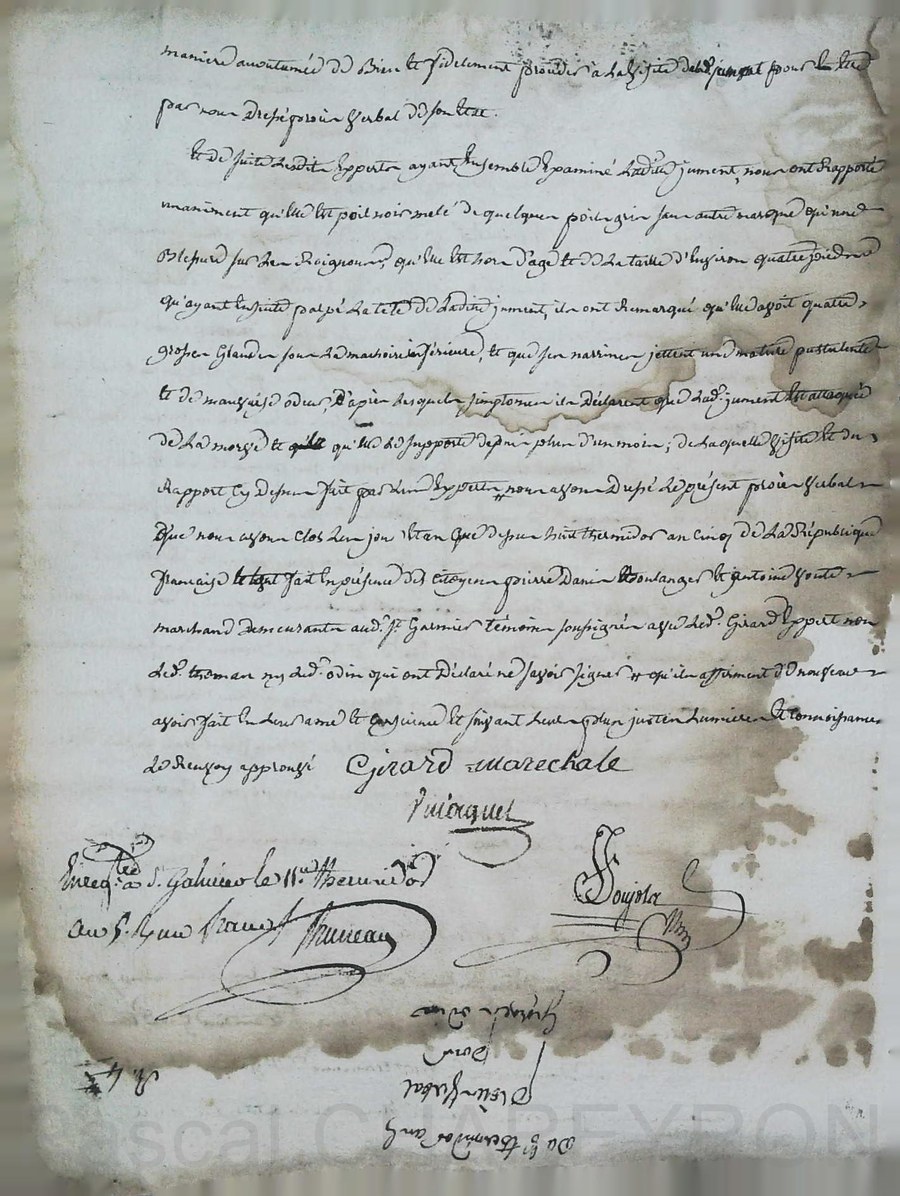 maniere accoutumée de Bien et fidelement proceder a la visite de lad. jument pour etre
par nous Dressé procès verbal de son Etat.
Et de suite Lesdits Experts ayant Ensemble Examiné Ladite jument, nous ont Rapporté
unaniment qu'elle Est poil noir melé de quelques poils gris sans autre marque qu'une
Blessure sur les Roignons, qu'elle Est hors d'age et de La taille d'Environ quatre pieds
qu'ayant Ensuite palpé La tete de Ladite jument, ils ont Remarqué qu'elle avoit quatre
grosses Glandes sous La machoire inférieure, et que ses narrines jettent une matiere purulente
et de mauvaise odeur, D'après Lesquels simptomes ils Déclarent que Lad. jument Est attaquée
de La morve et qu'elle La supporte depuis plus d'un mois; de Laquelle visite et du
Rapport Cy Dessus fait par Les Experts nous avons Dressé Le présent procès verbal
Que nous avons clos Les jour Et an Que dessus huit thermidor an cinq de La République
française fait En présence des Citoyens pierre Danis Boulanger Et antoine
marchand Demeurants aud. St. Galmier témoins soussignés avec Led. Girard Expert non
Led. thomas ny Led. odin qui ont Déclaré ne savoir signer # qu'ils affirment de nouveau
avoir fait En Leur ame Et conscience Et suivant Leurs plus justes Lumieres Et connoissances
Le Renvoy approuvé Girard marechale
Enreg.tré a St. Galmier le 11.e Thermidor
au 5. Reçu un franc Bruneau
N. 4
procès verbal
Du 8 thermidor an 5
Pascal CHAREYRON